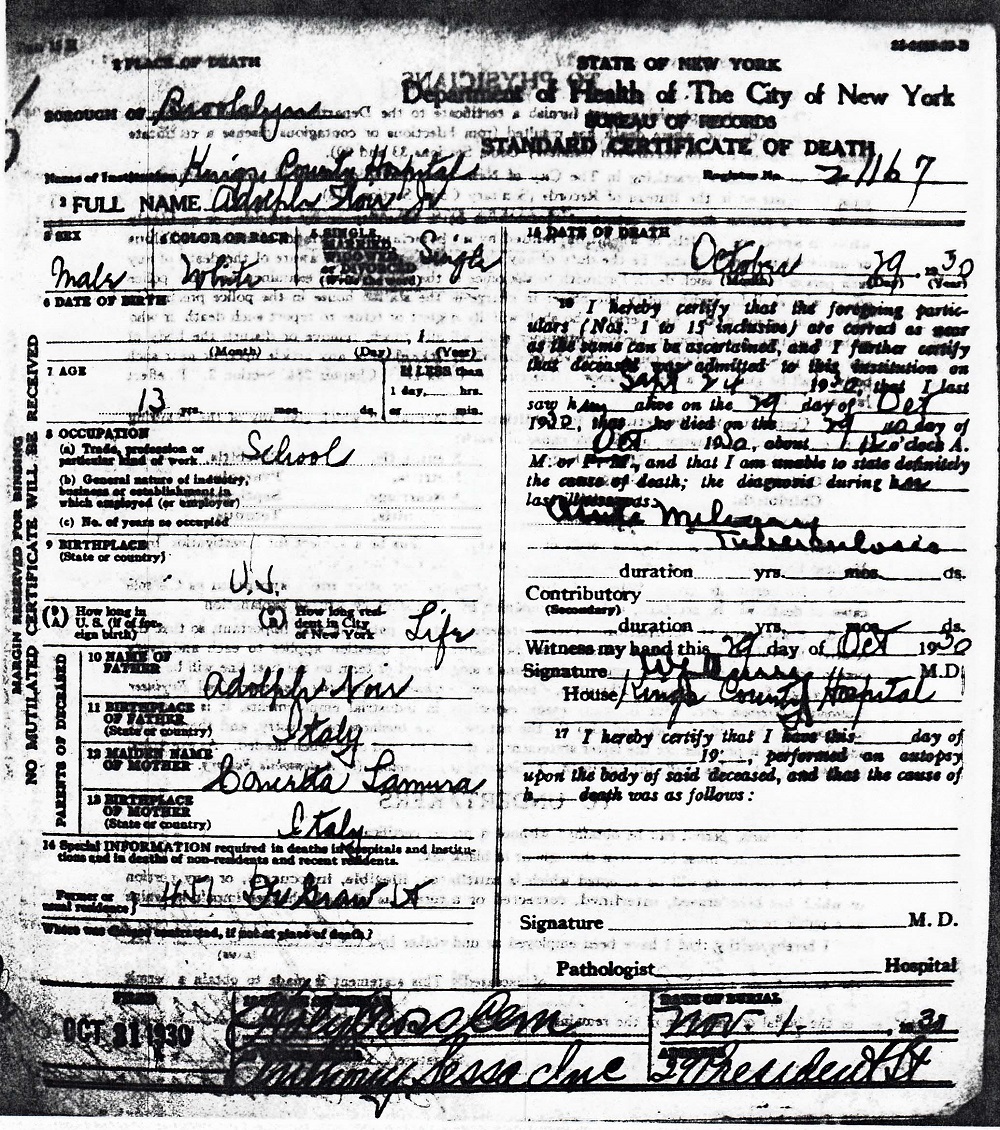 1 PLACE OF DEATH
STATE OF NEW YORK
Department of Health of The City of New York
BUREAU OF RECORDS
STANDARD CERTIFICATE OF DEATH
BOROUGH OF Brooklyn
Name of Institution Kings County Hospital
Register No. 21167
2 FULL NAME Adolph Jr
3 SEX
Male
4 COLOR OR RACE
White
5 SINGLE, MARRIED, WIDOWED, or DIVORCED (Write the word)
Single
6 DATE OF BIRTH
, 1
(Month) (Day) (Year)
7 AGE
13 yrs. mos. ds.
If LESS than
1 day, hrs.
or min.
8 OCCUPATION
(a) Trade, profession or
particular kind of work School
(b) General nature of industry,
business or establishment in
which employed (or employer)
(c) No. of years so occupied
9 BIRTHPLACE
(State or country)
U.S.
(9A) How long in
U. S. (if of for-
eign birth)
(9B) How long resi-
dent in City
of New York
Life
PARENTS OF DECEASED
10 NAME OF
FATHER
Adolph
11 BIRTHPLACE
OF FATHER
(State or country)
Italy
12 MAIDEN NAME
OF MOTHER
Lamura
13 BIRTHPLACE
OF MOTHER
(State or country)
Italy
14 Special INFORMATION required in deaths in hospitals and institu-
tions and in deaths of non-residents and recent residents.
Former or
usual residence
St
Where was disease contracted, if not at place of death?
MARGIN RESERVED FOR BINDING
NO MUTILATED CERTIFICATE WILL BE RECEIVED
15 DATE OF DEATH
October 29 1930
(Month) (Day) (Year)
16 I hereby certify that the foregoing partic-
ulars (Nos. 1 to 15 inclusive) are correct as near
as the same can be ascertained, and I further certify
that deceased was admitted to this institution on
Sept 24 1930, that I last
saw him alive on the 29 day of Oct
1930, that he died on the 29 day of
Oct 1930, about o'clock A.
M. or P. M., and that I am unable to state definitely
the cause of death; the diagnosis during his
last illness was:
Miliary
Tuberculosis
duration yrs. mos. ds.
Contributory
(Secondary)
duration yrs. mos. ds.
Witness my hand this 29 day of Oct 1930
Signature M.D.
House Kings County Hospital
17 I hereby certify that I have this day of
19 , performed an autopsy
upon the body of said deceased, and that the cause of
h death was as follows:
Signature M. D.
Pathologist Hospital
FILED
OCT 31 1930
Holy Cross Cem
DATE OF BURIAL
Nov. 1.
Anthony Sesso Inc
ADDRESS
President St